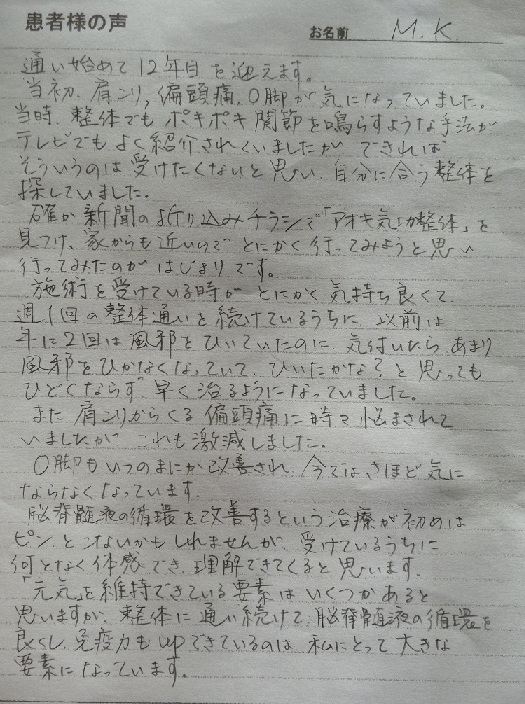 患者様の声
お名前 M.K
通い始めて12年目を迎えます。
当初、肩コリ、偏頭痛、O脚が気になっていました。
当時、整体でもボキボキ関節を鳴らすような手法が
テレビでもよく紹介されていましたが できれば
そういうのは受けたくないと思い、自分に合う整体を
探していました。
確か新聞の折り込みチラシで「アオキ気功整体」を
見つけ、家からも近いので とにかく行ってみようと思い
行ってみたのが はじまりです。
施術を受けている時が とにかく気持ち良くて、
週1回の整体通いを続けているうちに、以前は
年に2回は風邪をひいていたのに、気付いたら、あまり
風邪をひかなくなっていて、ひいたかな?と思っても
ひどくならず、早く治るようになっていました。
また肩コリからくる偏頭痛に時々悩まされて
いましたが これも激減しました。
O脚もいつのまにか改善され、今では、さほど気に
ならなくなっています。
脳脊髄液の循環を改善するという治療が初めは
ピンとこないかもしれませんが、受けているうちに
何となく体感でき、理解できてくると思います。
「元気」を維持できている要素はいくつかあると
思いますが、整体に通い続けて、脳脊髄液の循環を
良くし、免疫力もupできているのは、私にとって大きな
要素になっています。